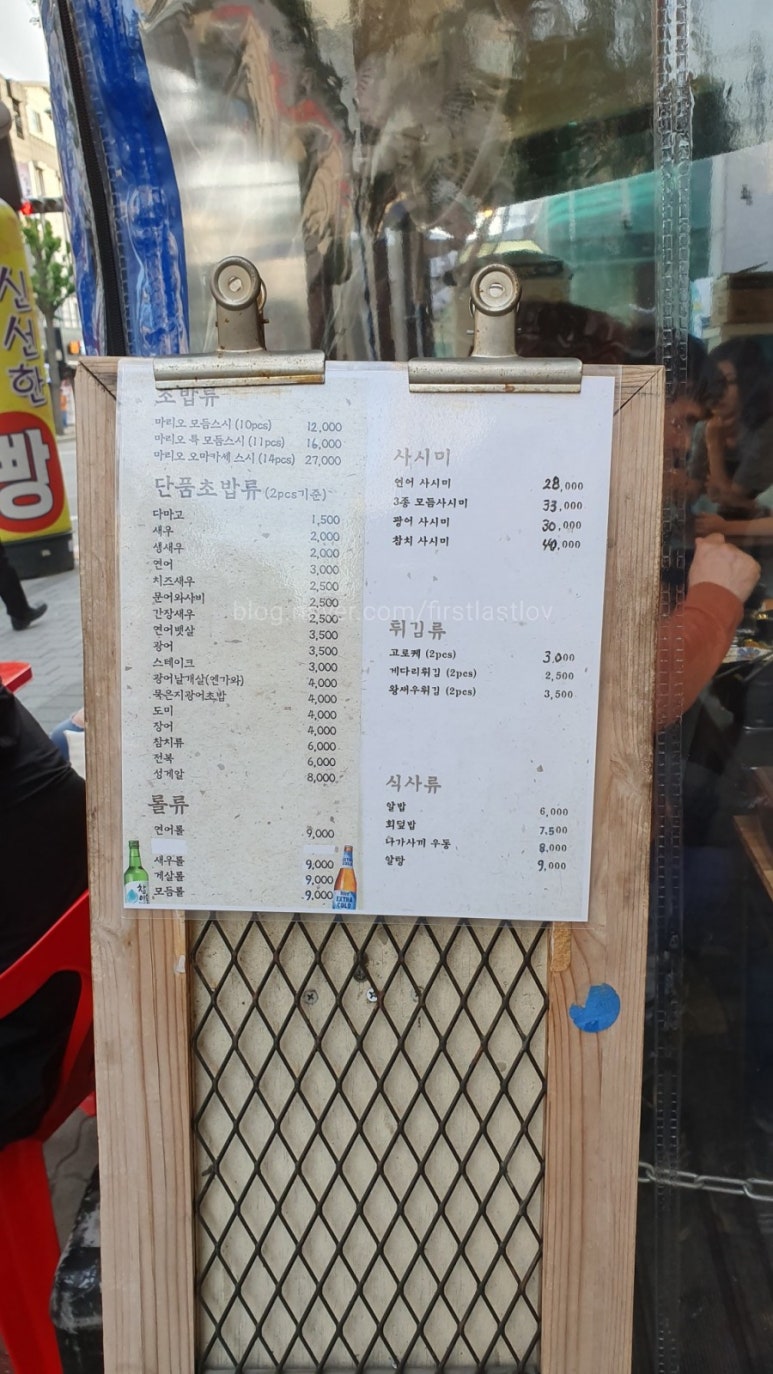 신선한
빵
초밥류
마리오 모듬스시 (10pcs) 12,000
마리오 특 모듬스시 (11pcs) 16,000
마리오 오마카세 스시 (14pcs) 27,000
단품초밥류 (2pcs기준)
다마고 1,500
새우 2,000
생새우 2,000
연어 3,000
치즈새우 2,500
문어와사비 2,500
간장새우 2,500
연어뱃살 3,500
광어 3,500
스테이크 3,000
광어날개살(엔가와) 4,000
묵은지광어초밥 4,000
도미 4,000
장어 4,000
참치류 6,000
전복 6,000
성게알 8,000
롤류
연어롤 9,000
새우롤 9,000
게살롤 9,000
모듬롤 9,000
사시미
연어 사시미 28,000
3종 모듬사시미 33,000
광어 사시미 30,000
참치 사시미 40,000
튀김류
고로케 (2pcs) 3,000
게다리튀김 (2pcs) 2,500
왕새우튀김 (2pcs) 3,500
식사류
알밥 6,000
회덮밥 7,500
나가사끼 우동 8,000
알탕 9,000
EXTRA
COLD
blog.naver.com/firstlastlov